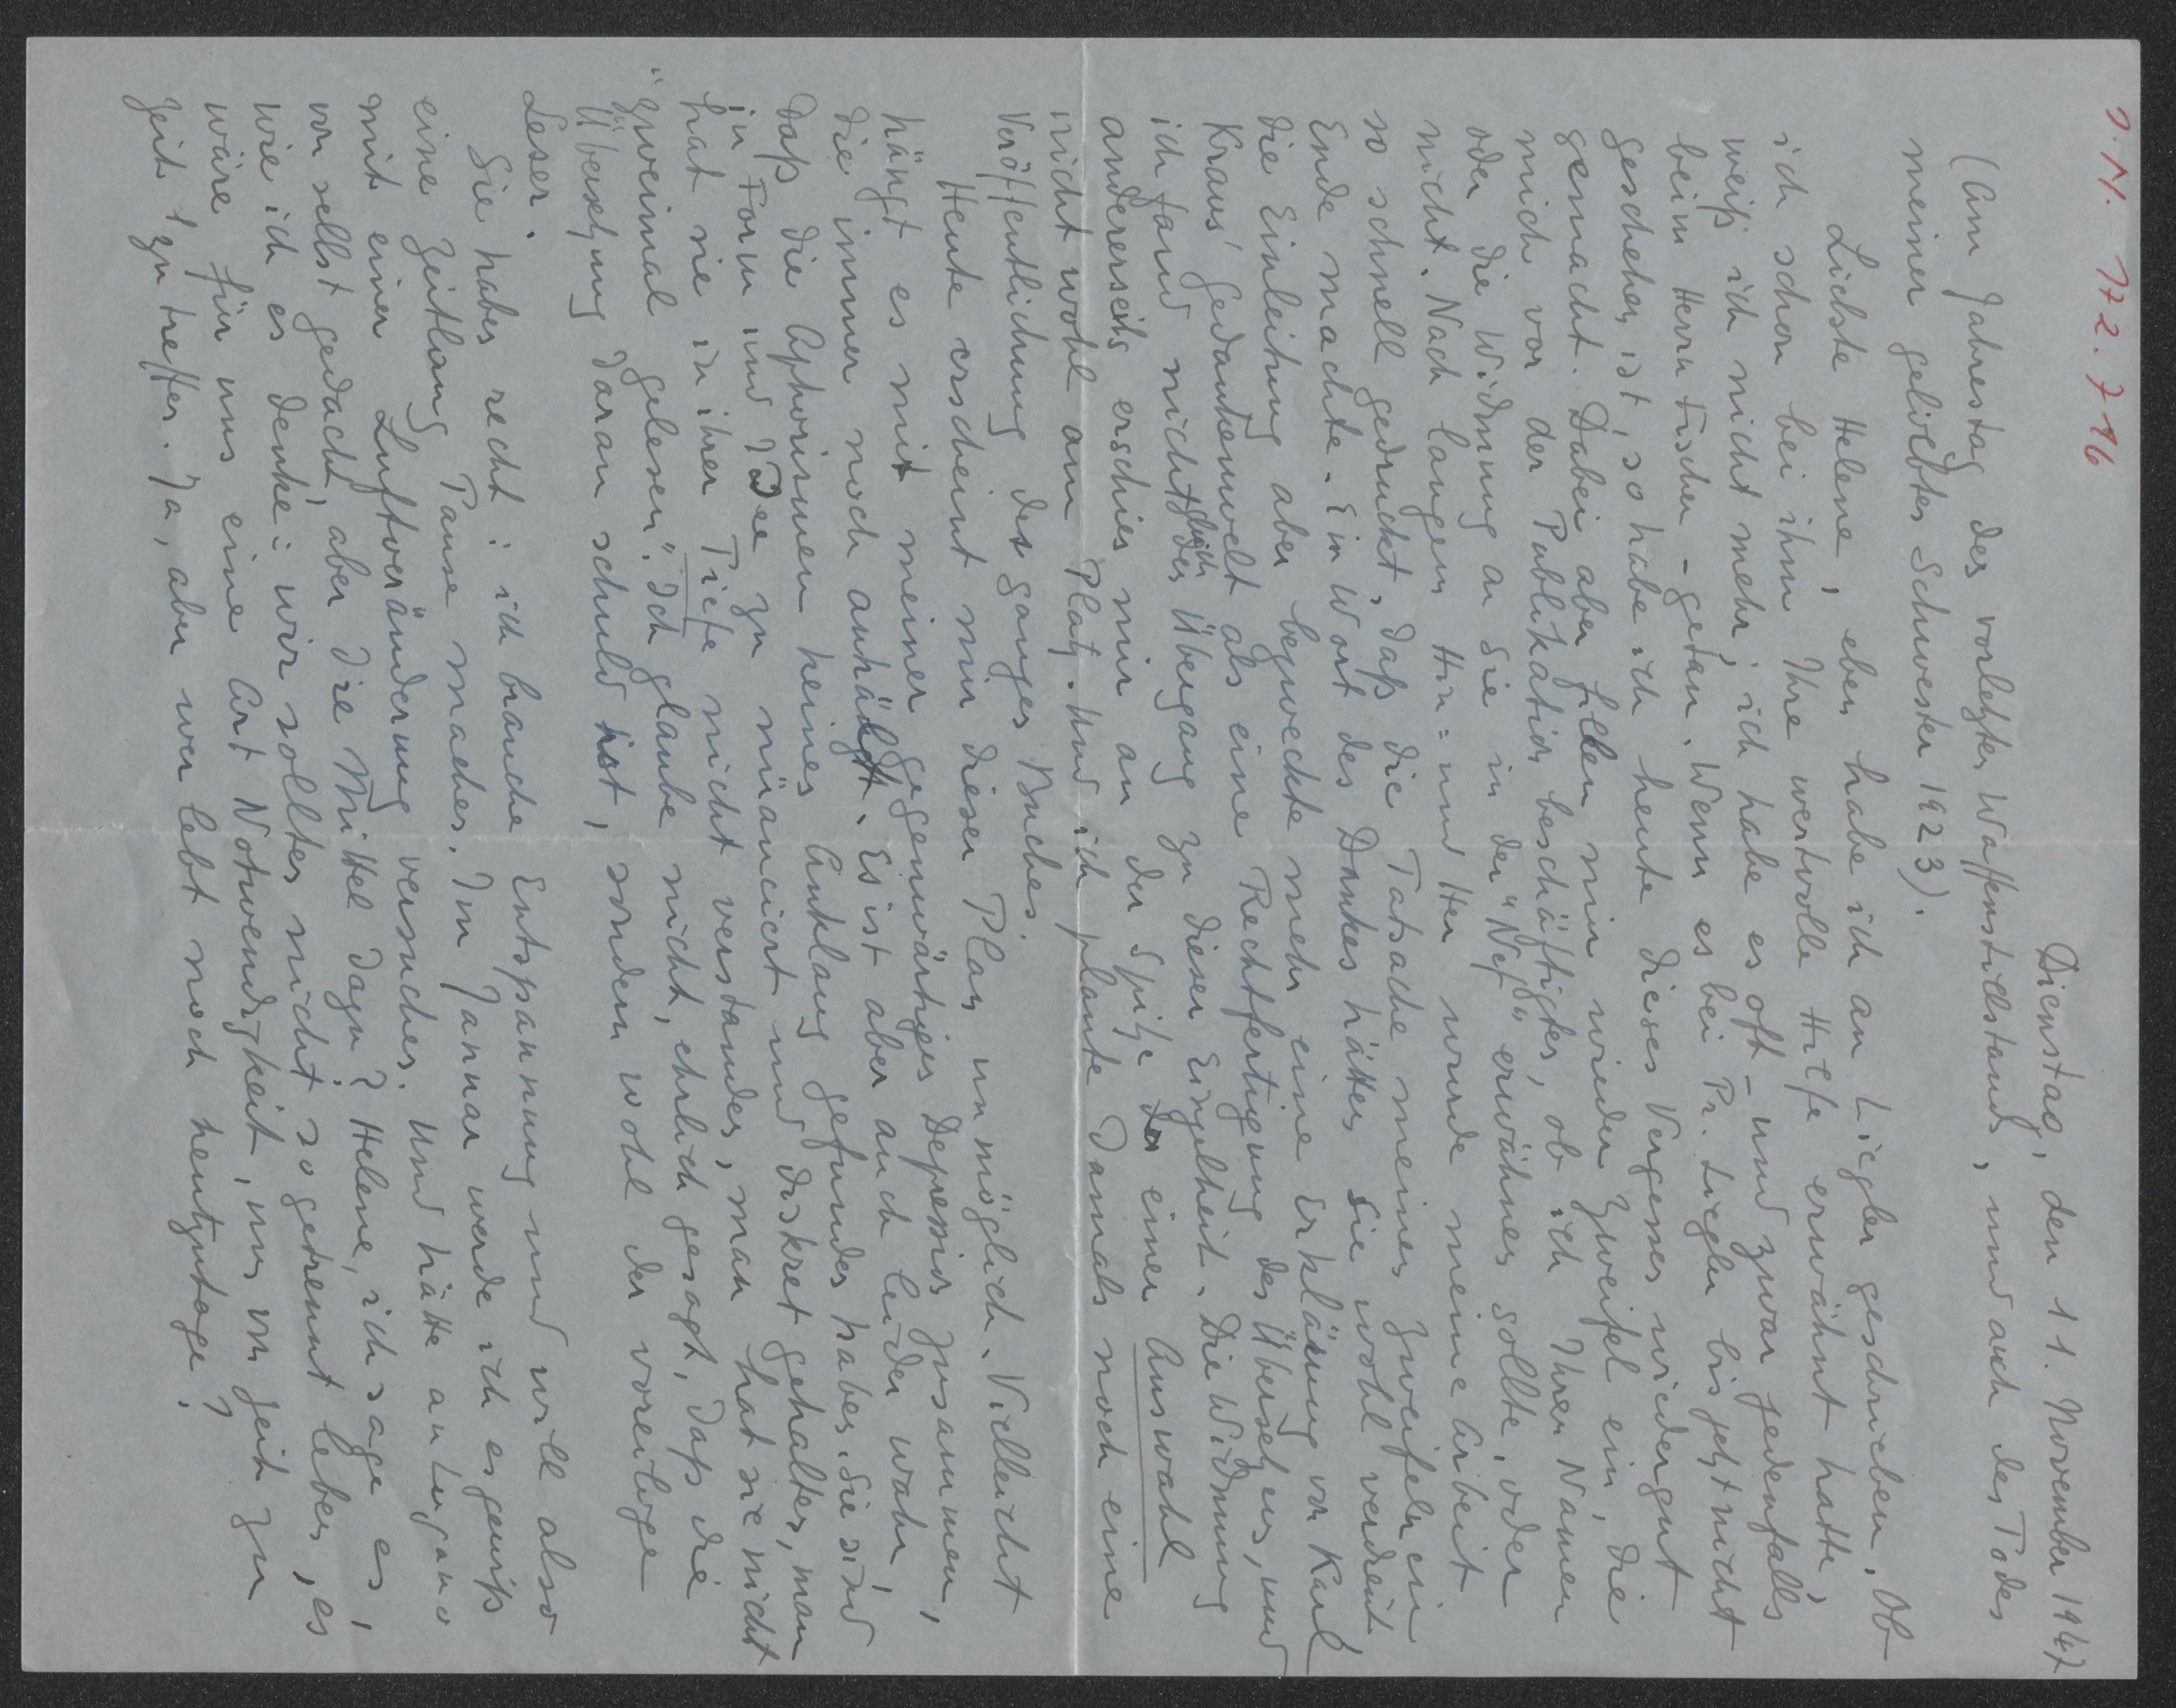 I.N. 172.746
Dienstag, den 11. November 1947
(Am Jahrestag des vorletzten Waffenstillstands, und auch des Todes
meiner geliebten Schwester 1923).
Liebste Helene, eben habe ich an Liegler geschrieben. Ob
ich schon bei ihm Ihre wertvolle Hilfe erwähnt hatte,
weiß ich nicht mehr, ich habe es oft – und zwar jedenfalls
beim Herrn Fischer – getan. Wenn es bei Pr. Liegler bis jetzt nicht
geschehen ist, so habe ich heute dieses Vergessen wiedergut
gemacht. Dabei aber fallen mir wieder Zweifel ein, die
mich vor der Publikation beschäftigten, ob ich Ihren Namen
oder die Widmung an Sie in der "Nef" erwähnen sollte, oder
nicht. Nach langem Hin= und Her wurde meine Arbeit
so schnell gedruckt, daß die Tatsache meinen Zweifeln ein
Ende machte. Ein Wort des Dankes hätten Sie wohl verdient,
die Einleitung aber bezweckte mehr eine Erklärung von Karl
Kraus' Gedankenwelt als eine Rechtfertigung des Übersetzens, und
ich fand nicht den Übergang zu dieser Einzelheit. Die Widmung
andererseits erschien mir an der Spitze einer Auswahl
nicht wohl am Platz. Und ich plante damals noch eine
Veröffentlichung des ganzen Buches.
Heute erscheint mir dieser Plan unmöglich. Vielleicht
hängt es mit meiner gegenwärtigen Depression zusammen,
die immer noch anhält. Es ist aber auch leider wahr,
daß die Aphorismen keinen Anklang gefunden haben. Sie sind
in Form und Idee zu nüanciert und diskret gehalten, man
hat sie in ihrer Tiefe nicht verstanden, man hat sie nicht
"zweimal gelesen". Ich glaube nicht, ehrlich gesagt, daß die
Übersetzung daran schuld ist, sondern wohl der voreilige
Leser.
Sie haben recht: ich brauche Entspannung und will also
eine Zeitlang Pause machen. Im Januar werde ich es gewiß
mit einer Luftveränderung versuchen. Und hätte an Lugano
von selbst gedacht, aber die Mittel dazu? Helene, ich sage es,
wie ich es denke: wir sollten nicht so getrennt leben, es
wäre für uns eine Art Notwendigkeit, uns von Zeit zu
Zeit zu treffen. Ja, aber wer lebt noch heutzutage?